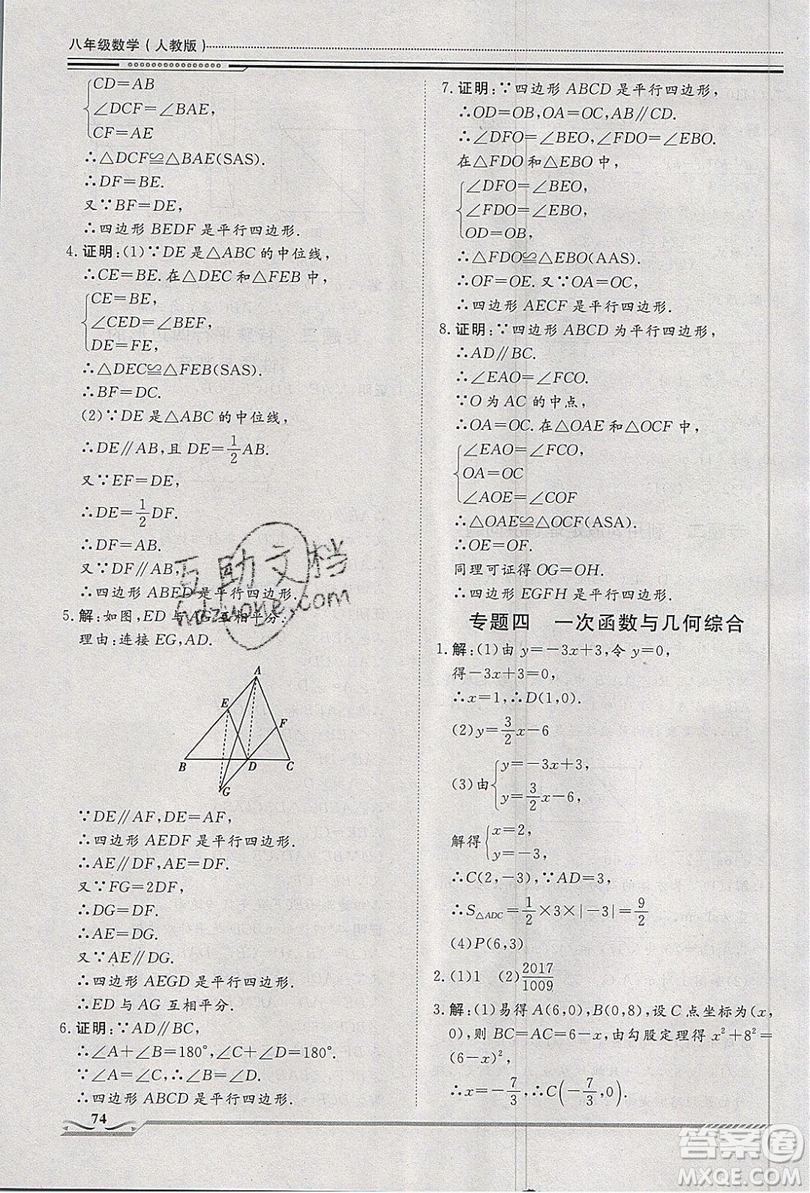 八年级数学(人教版)
CD=AB
∠DCF=∠BAE,
CF=AE
∴△DCF≌△BAE(SAS).
∴DF=BE.
又∵BF=DE,
∴四边形 BEDF 是平行四边形.
4. 证明:(1)∵DE 是△ABC 的中位线,
∴CE=BE. 在△DEC 和△FEB 中,
CE=BE,
∠CED=∠BEF,
DE=FE,
∴△DEC≌△FEB(SAS).
∴BF=DC.
(2)∵DE 是△ABC 的中位线,
∴DE∥AB,且 DE=1/2AB.
又∵EF=DE,
∴DE=1/2DF.
∴DF=AB.
又∵DF∥AB,
∴四边形 ABED 是平行四边形.
5. 解:如图,ED 与 AG 互相平分.
理由:连接 EG,AD.
A
E
F
B
D
C
G
∵DE∥AF,DE=AF,
∴四边形 AEDF 是平行四边形.
∴AE=DF,AE∥DF.
又∵FG=2DF,
∴DG=DF.
∴AE=DG.
又∵AE∥DG.
∴四边形 AEGD 是平行四边形.
∴ED 与 AG 互相平分.
6. 证明:∵AD∥BC,
∴∠A+∠B=180°,∠C+∠D=180°.
∵∠A=∠C,∴∠B=∠D.
∴四边形 ABCD 是平行四边形.
74
7. 证明:∵四边形 ABCD 是平行四边形,
∴OD=OB,OA=OC,AB∥CD.
∴∠DFO=∠BEO,∠FDO=∠EBO.
在△FDO 和△EBO 中,
∠DFO=∠BEO,
∠FDO=∠BEO,
OD=OB,
∴△FDO≌△EBO(AAS).
∴OF=OE. 又∵OA=OC,
∴四边形 AECF 是平行四边形.
8. 证明:∵四边形 ABCD 为平行四边形,
∴AD∥BC.
∴∠EAO=∠FCO.
∵O 为 AC 的中点,
∴OA=OC. 在△OAE 和△OCF 中,
∠EAO=∠FCO,
OA=OC
∠AOE=∠COF
∴△OAE≌△OCF(ASA).
∴OE=OF.
同理可证得 OG=OH.
∴四边形 EGFH 是平行四边形.
专题四 一次函数与几何综合
1. 解:(1)由 y=-3x+3,令 y=0,
得-3x+3=0,
∴x=1,∴D(1,0).
(2)y=3/2x-6
(3)由 y=-3x+3,
y=3/2x-6,
解得 x=2,
y=-3,
∴C(2,-3). ∵AD=3,
∴S△ADC=1/2×3×|-3|=9/2
(4)P(6,3)
2. (1)1 (2)2017/1009
3. 解:(1)易得 A(6,0),B(0,8),设 C 点坐标为(x,
0),则 BC=AC=6-x,由勾股定理得 x²+8²=
(6-x)²,
∴x=-7/3,∴C(-7/3,0).
互助文档
hdzuone.com
答案圈
MXQE.COM